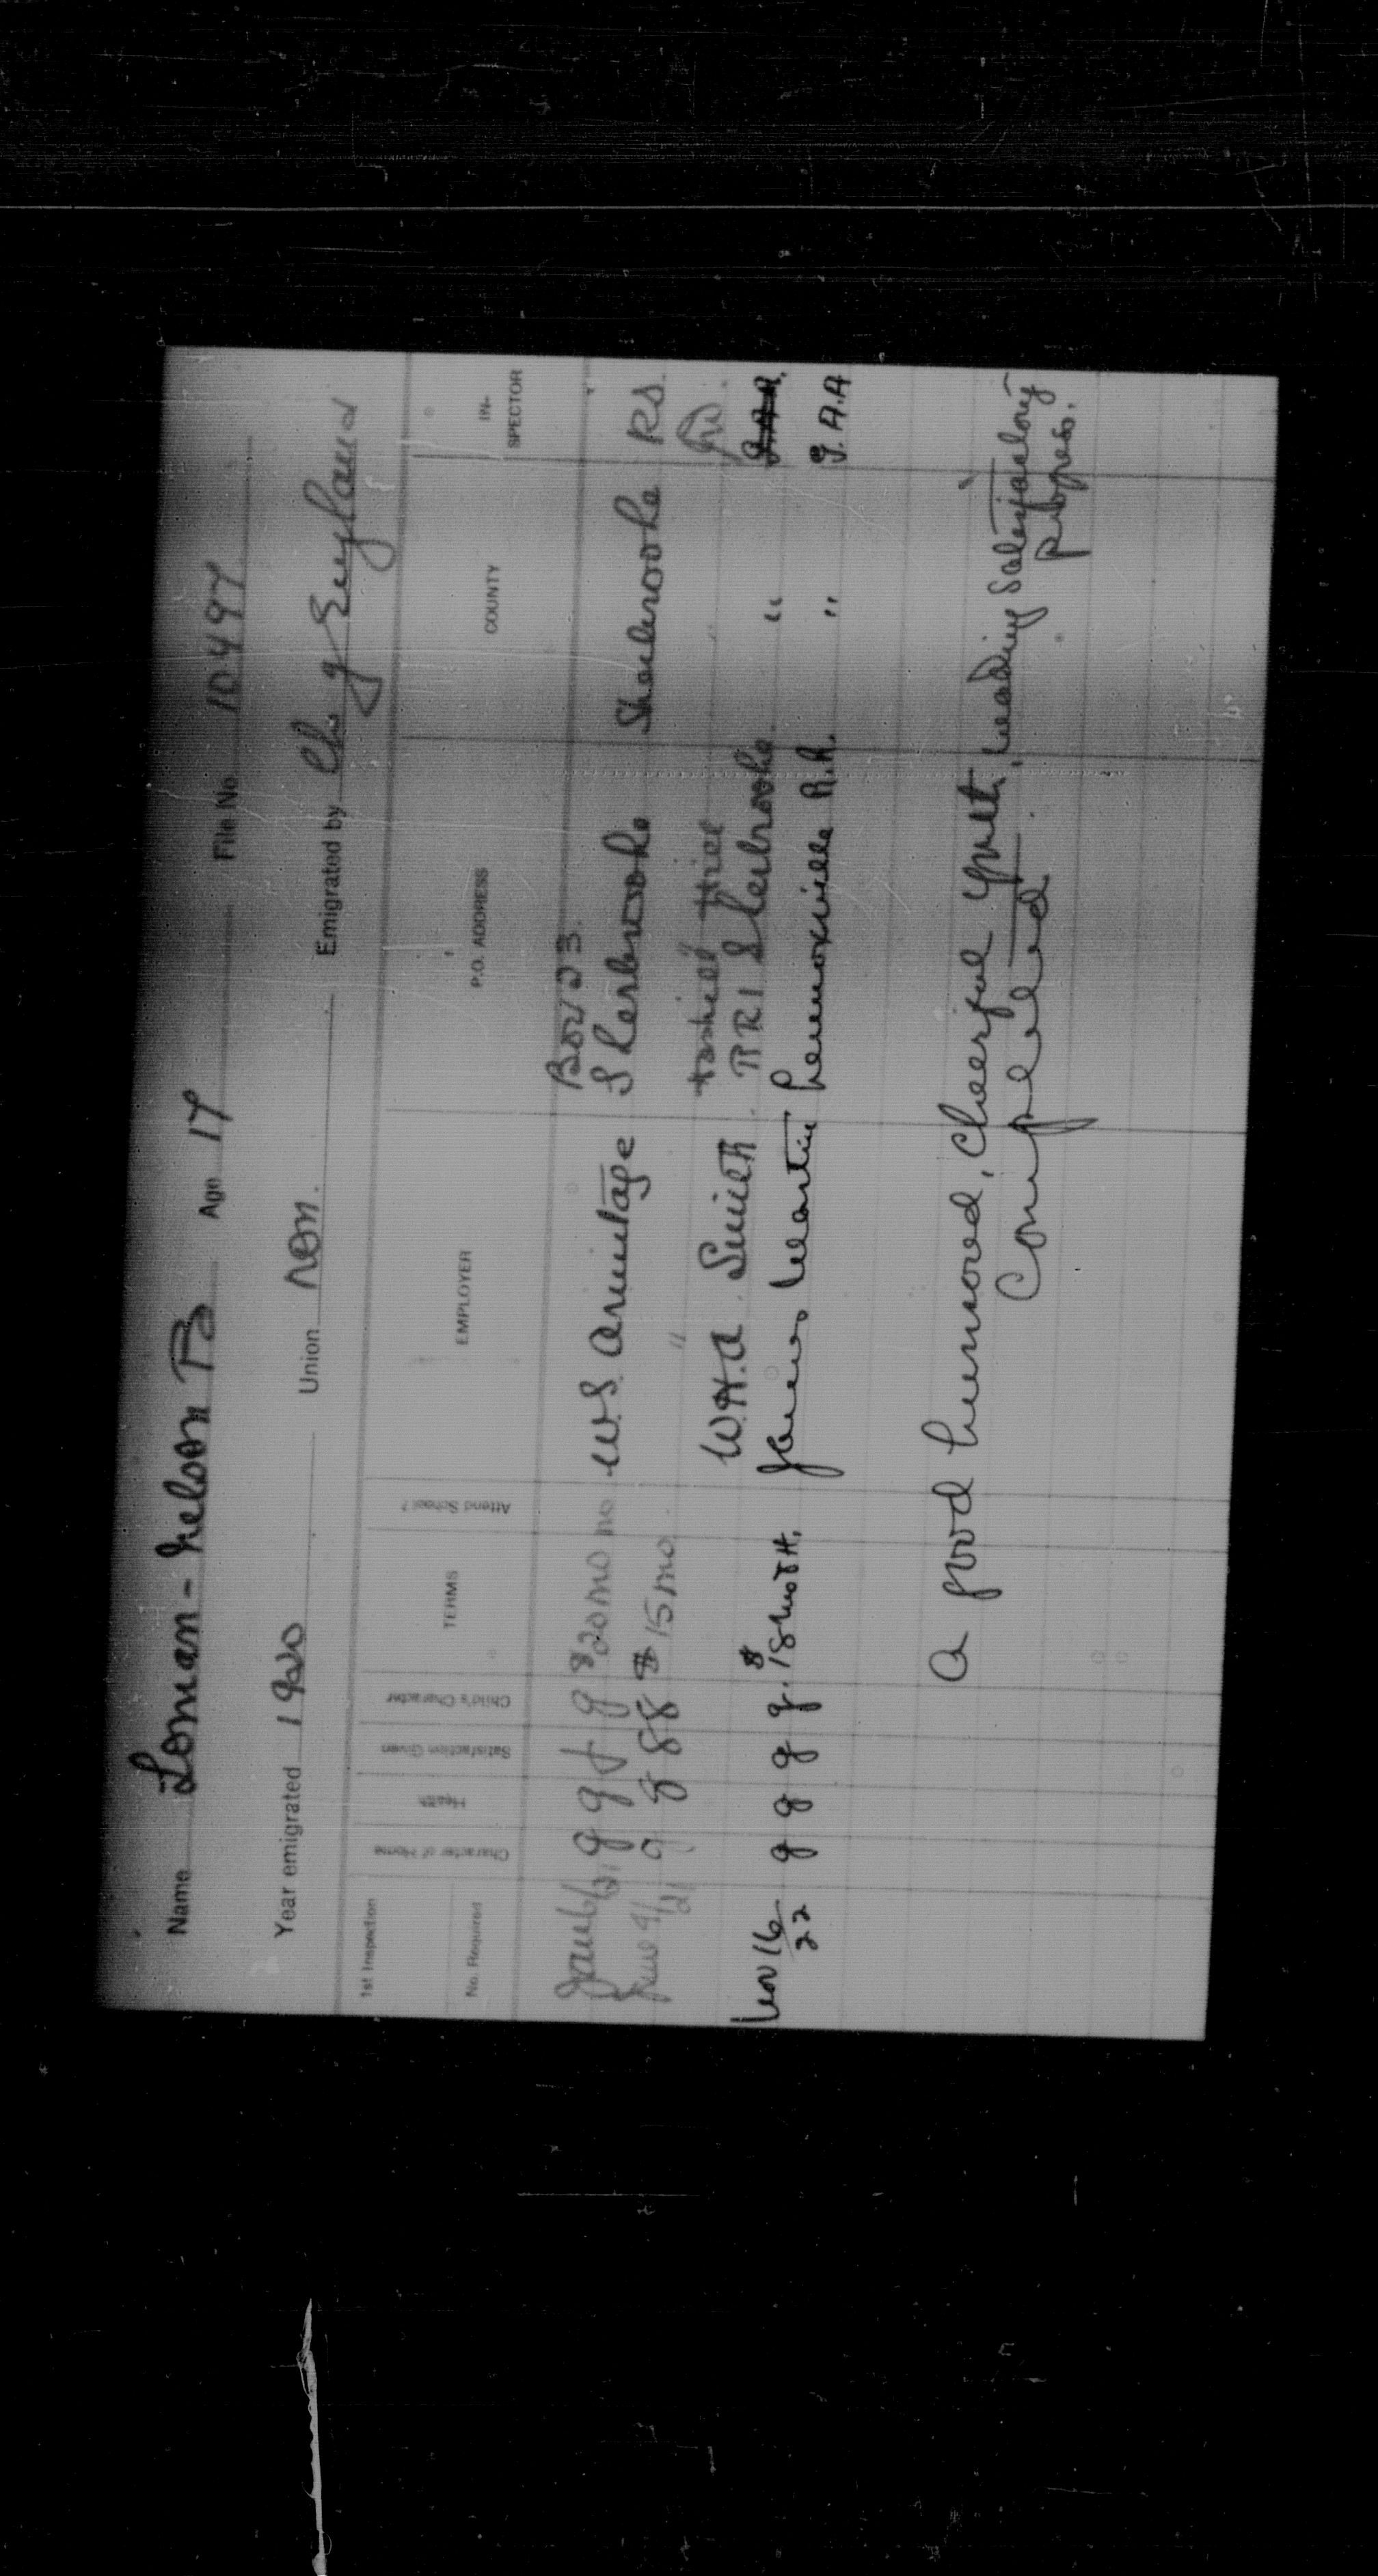 Name Loman - Nelson P. Age 17 File No. 10497
Year emigrated 1920 Union non. Emigrated by Ch. of England
1st Inspection
No. Required
Character of Home Health Satisfaction Given Child's Character TERMS Attend School? EMPLOYER P.O. ADDRESS COUNTY IN-SPECTOR
Box 23.
Jan 6/21 g g f g $20 mo no W.S. Armitage Sherbrooke Sherbrooke RS.
June 9/21 g g g g $15 mo. "
W.H.A. Smith. RR1 Sherbrooke. "
Nov 16/22 g g g g. $18 mo James Martin Lennoxville R.R. " J.A.A
A good humored, cheerful youth, making satisfactory
progress.
Completed.